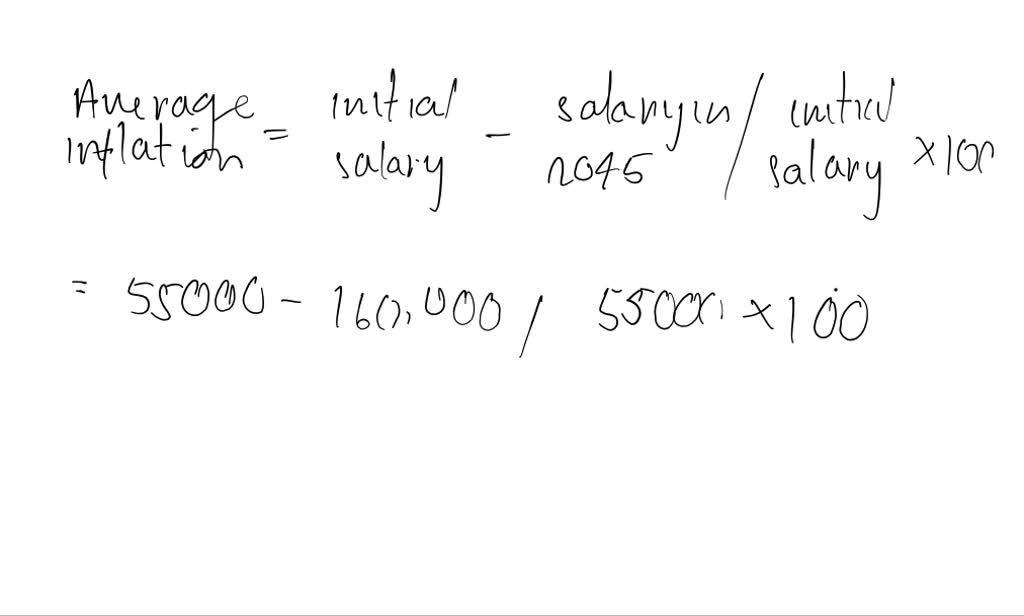 Average initial salary in / initial
inflation = salary - 2045 / salary x100
= 55000 - 160,000 / 55000 x 100